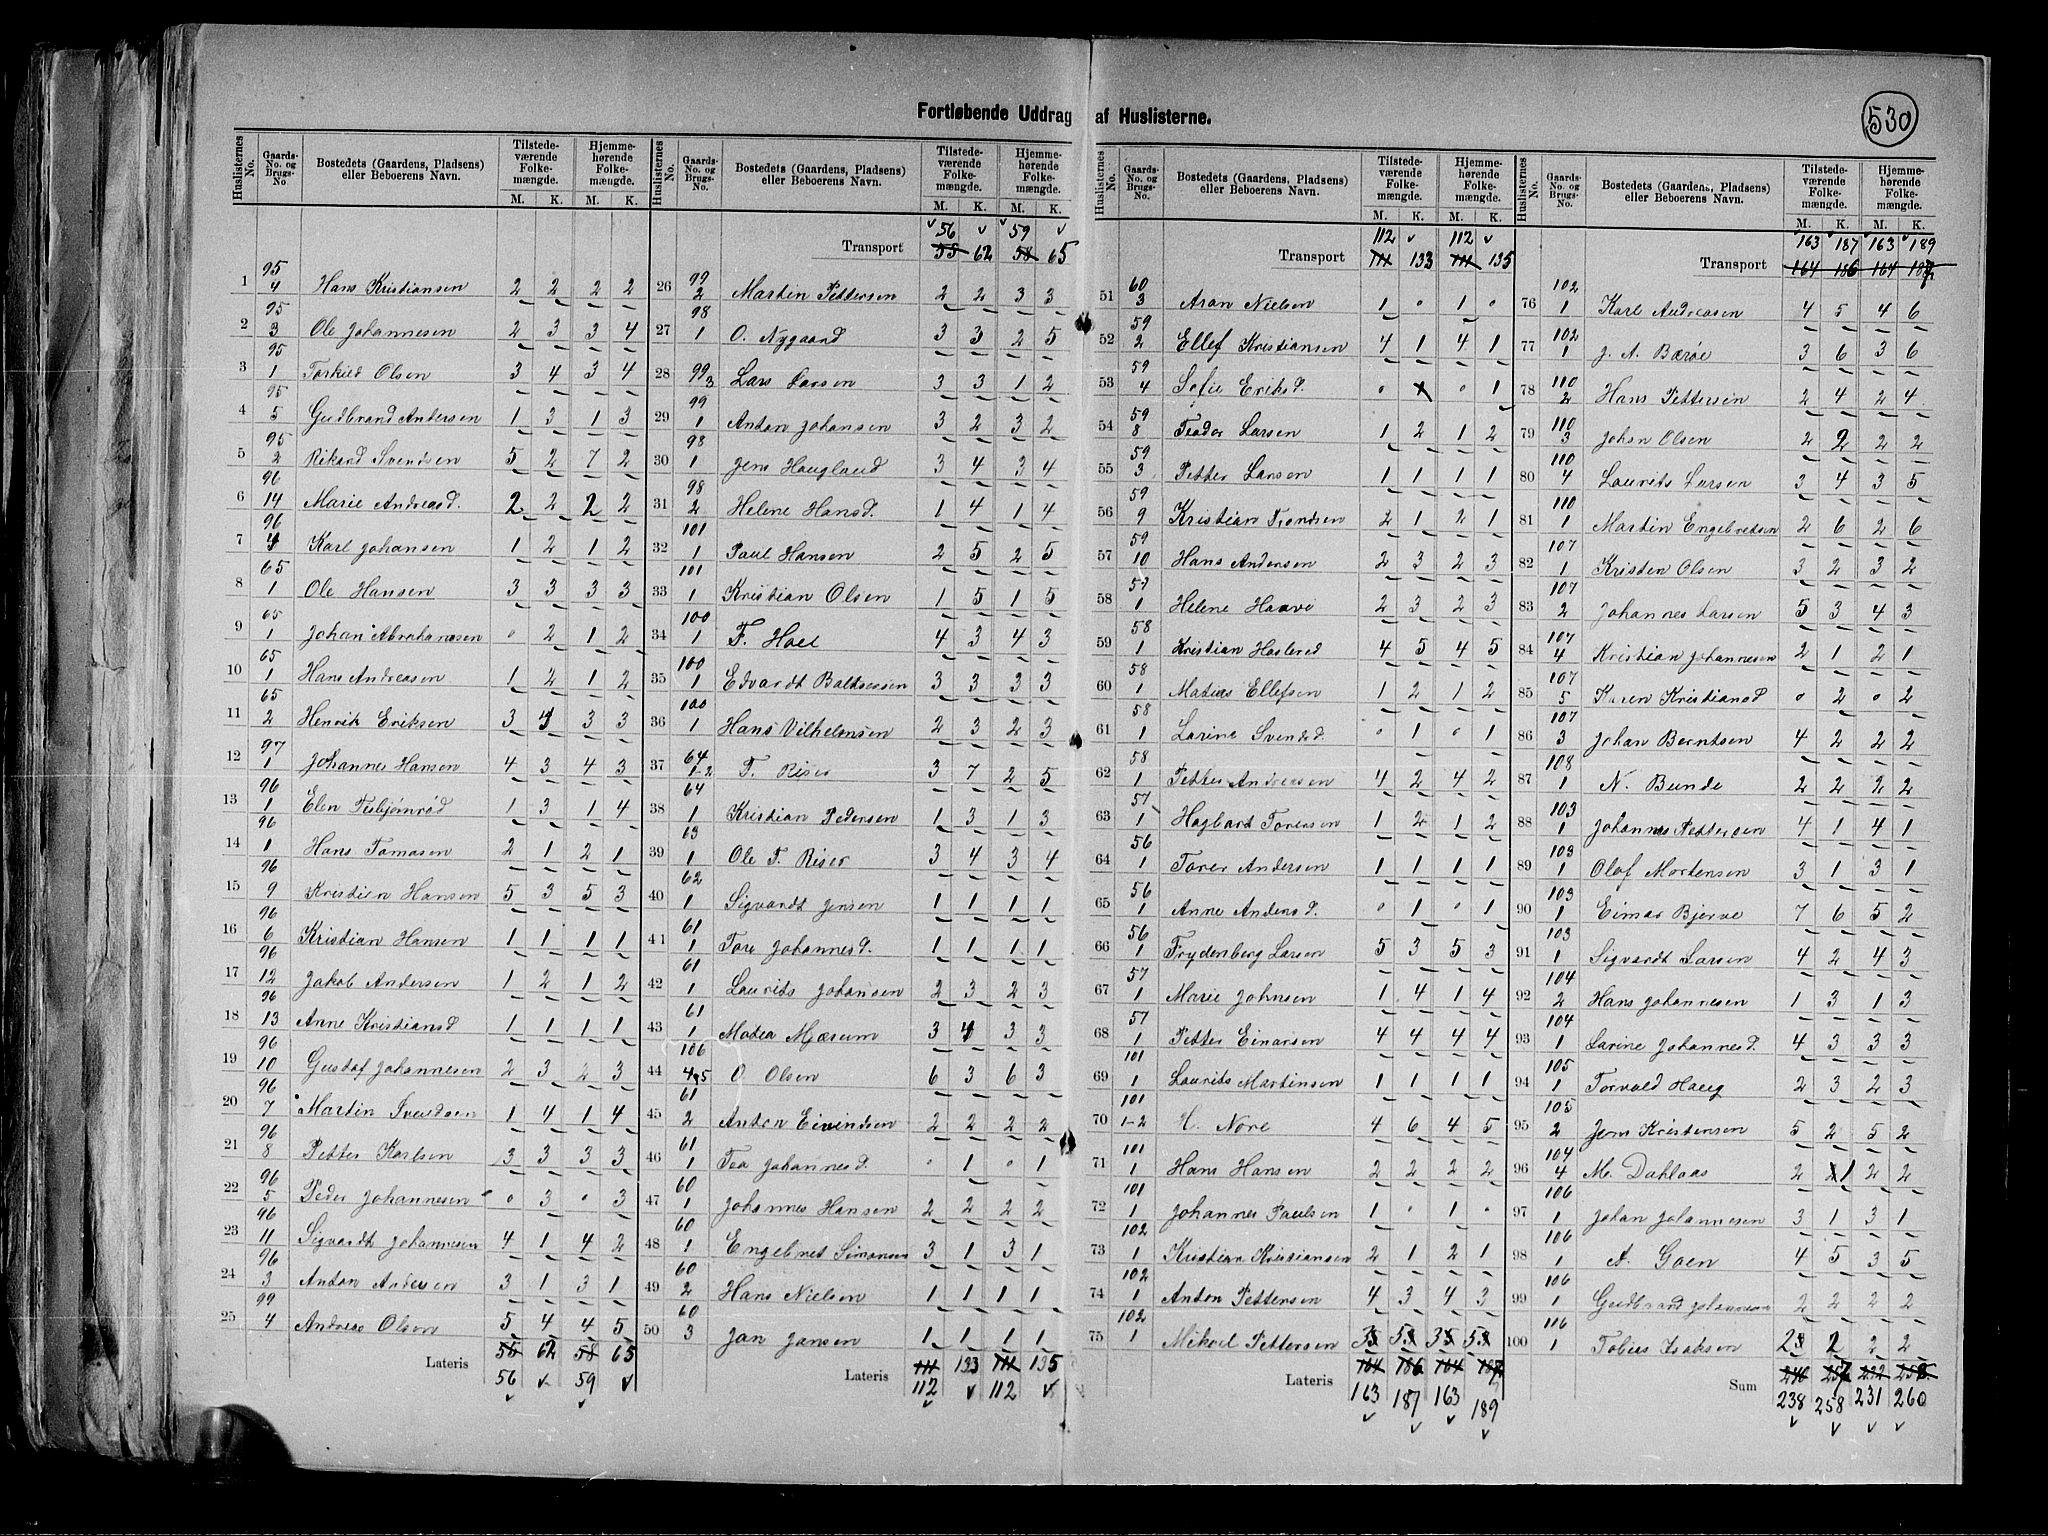 Fortløbende Uddrag af Huslisterne.
530
Huslisternes No. Gaards-No. og Brugs-No. Bostedets (Gaardens, Pladsens) eller Beboerens Navn. Tilstedeværende Folkemængde. M. K. Hjemmehørende Folkemængde. M. K.
1 95/4 Hans Kristiansen 2 2 2 2
2 95/3 Ole Johannesen 2 3 3 4
3 95/1 Torkild Olsen 3 4 3 4
4 95/5 Gudbrand Andersen 1 3 1 3
5 95/2 Rikard Svendsen 5 2 7 2
6 96/14 Marie Andreasd. 2 2 2 2
7 96/4 Karl Johansen 1 2 1 2
8 65/1 Ole Hansen 3 3 3 3
9 65/1 Johan Abrahamsen 0 2 1 2
10 65/1 Hans Andreasen 1 2 1 2
11 65/2 Henrik Eriksen 3 3 3
12 97/1 Johannes Hansen 4 3 4 3
13 96/1 Elen Fisbjønrød 1 3 1 4
14 96/1 Hans Tomasen 2 1 2 1
15 96/9 Kristian Hansen 5 3 5 3
16 96/6 Kristian Hansen 1 1 1 1
17 96/12 Jakob Andersen 1 2 1 2
18 96/13 Anne Kristiansd 1 1 1 1
19 96/10 Gustaf Johannesen 2 3 2 3
20 96/7 Martin Svendsen 1 4 1 4
21 96/8 Petter Karlsen 3 3 3 3
22 96/5 Peder Johannesen 0 3 0 3
23 96/11 Sigvardt Johannesen 4 1 4 2
24 96/3 Anton Andersen 3 1 3 1
25 99/4 Andreas Olsen 5 4 4 5
Lateris 55 62 58 65
56 59
Huslisternes No. Gaards-No. og Brugs-No. Bostedets (Gaardens, Pladsens) eller Beboerens Navn. Tilstedeværende Folkemængde. M. K. Hjemmehørende Folkemængde. M. K.
56 59
Transport 55 62 58 65
26 99/2 Martin Pettersen 2 2 3 3
27 98/1 O. Nygaard 3 3 2 5
28 99/3 Lars Larsen 3 3 1 2
29 99/1 Anton Johansen 3 2 3 2
30 98/1 Jens Haugland 3 4 3 4
31 98/2 Helene Hansd. 1 4 1 4
32 101/1 Paul Hansen 2 5 2 5
33 101/1 Kristian Olsen 1 5 1 5
34 100/1 F. Hoel 4 3 4 3
35 100/1 Edvardt Baltsersen 3 3 3 3
36 100/1 Hans Vilhelmsen 2 3 2 3
37 64/1-2 T. Riser 3 7 2 5
38 64/1 Kristian Pedersen 1 3 1 3
39 63/1 Ole T. Riser 3 4 3 4
40 62/1 Sigvardt Jensen 1 1 1 1
41 61/1 Tore Johannesd. 1 1 1 1
42 61/1 Laurits Johansen 2 3 2 3
43 61/1 Matea Mærum 3 4 3 3
44 106/4,5 O. Olsen 6 3 6 3
45 61/2 Anton Eivindsen 2 2 2 2
46 61/1 Tea Johannesd. 0 1 0 1
47 60/1 Johannes Hansen 2 2 2 2
48 60/1 Engebret Simonsen 3 1 3 1
49 60/2 Hans Nielsen 1 1 1 1
50 60/3 Jan Jansen 1 1 1 1
Lateris 111 133 111 135
112 112
Huslisternes No. Gaards-No. og Brugs-No. Bostedets (Gaardens, Pladsens) eller Beboerens Navn. Tilstedeværende Folkemængde. M. K. Hjemmehørende Folkemængde. M. K.
112 112
Transport 111 133 111 135
51 60/3 Aron Nielsen 1 0 1 0
52 59/2 Ellef Kristiansen 4 1 4 1
53 59/4 Sofie Eriksd. 0 1 0 1
54 59/8 Teodor Larsen 1 2 1 2
55 59/3 Petter Larsen 1 1 1 1
56 59/9 Kristian Trondsen 2 1 2 1
57 59/10 Hans Andersen 2 3 2 3
58 57/1 Helene Haave 2 3 2 3
59 58/1 Kristian Haslerud 4 5 4 5
60 58/1 Matias Ellefsen 1 2 1 2
61 58/1 Larine Svendsd. 0 1 0 1
62 58/1 Petter Andersen 4 2 4 2
63 57/1 Hagbart Torersen 1 2 1 2
64 56/1 Torer Andersen 1 1 1 1
65 56/1 Anne Andersd. 0 1 0 1
66 56/1 Frydenberg Larsen 5 3 5 3
67 57/1 Marie Johnsen 1 4 1 4
68 57/1 Petter Einarsen 4 4 4 4
69 101/1 Laurits Martinsen 1 1 1 1
70 101/1-2 H. Nore 4 6 4 5
71 101/1 Hans Hansen 2 2 2 2
72 101/1 Johannes Paulsen 1 0 1 0
73 102/1 Kristian Kristiansen 2 1 2 1
74 102/1 Anton Pettersen 4 3 4 3
75 102/1 Mikael Pettersen 3 5 3 5
Lateris 164 186 164 187
163 187 163 189
Huslisternes No. Gaards-No. og Brugs-No. Bostedets (Gaardens, Pladsens) eller Beboerens Navn. Tilstedeværende Folkemængde. M. K. Hjemmehørende Folkemængde. M. K.
163 187 163 189
Transport 164 186 164 187
76 102/1 Karl Andreasen 4 5 4 6
77 102/1 J. A. Bærøe 3 6 3 6
78 110/2 Hans Pettersen 2 4 2 4
79 110/3 Johan Olsen 2 2 2 2
80 110/4 Laurits Larsen 3 4 3 5
81 110/1 Martin Engebretsen 2 6 2 6
82 107/1 Kristen Olsen 3 2 3 2
83 107/2 Johannes Larsen 5 3 4 3
84 107/4 Kristian Johannesen 2 1 2 1
85 107/5 Karen Kristiansd 0 2 0 2
86 107/3 Johan Berntsen 4 2 2 2
87 108/1 N. Bunde 2 2 2 2
88 103/1 Johannes Pettersen 4 1 4 1
89 103/1 Olaf Mortensen 3 1 3 1
90 103/1 Einar Bjerve 7 6 5 2
91 103/1 Sigvardt Larsen 4 2 4 3
92 104/2 Hans Johannesen 1 3 1 3
93 104/1 Larine Johannesd. 4 3 3 3
94 105/1 Torvald Haug 2 3 2 3
95 105/2 Jens Kristensen 5 2 5 2
96 104/4 M. Dahlaas 2 1 2 2
97 106/1 Johan Johannesen 3 1 3 1
98 106/1 A. Goen 4 5 3 5
99 106/1 Gudbrand Johannesen 2 2 2 2
100 116/1 Tobias Isaksen 2 2 2 2
Sum 240 257 232 258
238 258 231 260